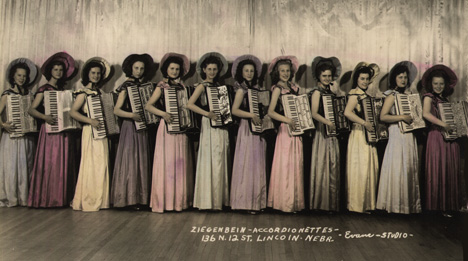 ZIEGENBEIN - ACCORDIONETTES -
136 N. 12 ST. LINCOLN - NEBR. - Evans - STUDIO -